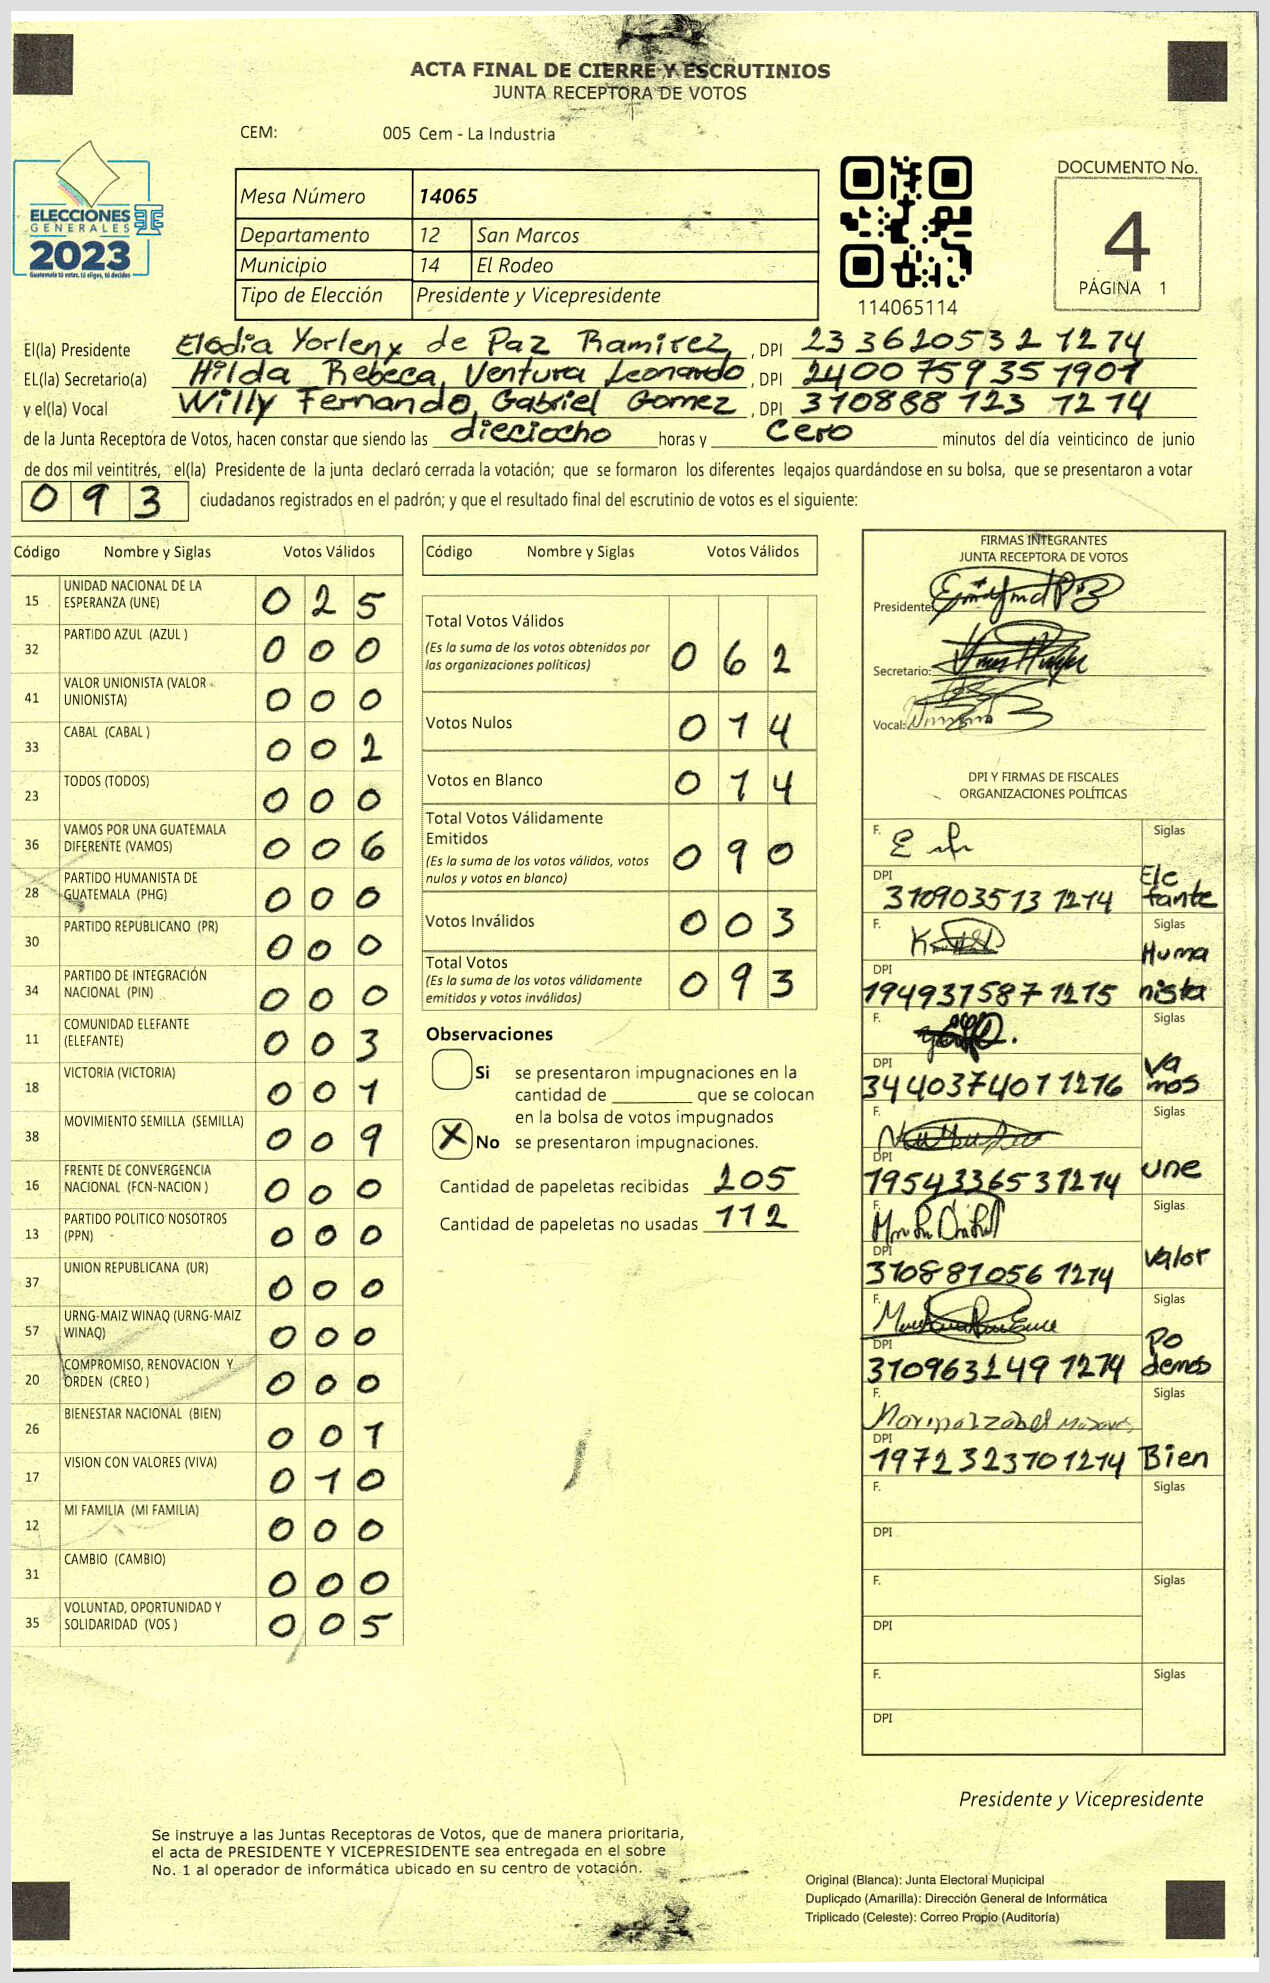 ACTA FINAL DE CIERRE Y ESCRUTINIOS
JUNTA RECEPTORA DE VOTOS
CEM: 005 Cem - La Industria
ELECCIONES
GENERALES
2023
Guatemala tú votas, tú eliges, tú decides
Mesa Número 14065
Departamento 12 San Marcos
Municipio 14 El Rodeo
Tipo de Elección Presidente y Vicepresidente
114065114
DOCUMENTO No.
4
PÁGINA 1
El(la) Presidente Elodia Yorleny de Paz Ramirez, DPI 23 3620532 1274
EL(la) Secretario(a) Hilda Rebeca, Ventura Leonardo, DPI 2400 759351901
y el(la) Vocal Willy Fernando, Gabriel Gomez, DPI 310888 123 1214
de la Junta Receptora de Votos, hacen constar que siendo las dieciocho horas y cero minutos del día veinticinco de junio
de dos mil veintitrés, el(la) Presidente de la junta declaró cerrada la votación; que se formaron los diferentes legajos guardándose en su bolsa, que se presentaron a votar
093 ciudadanos registrados en el padrón; y que el resultado final del escrutinio de votos es el siguiente:
Código Nombre y Siglas Votos Válidos
15 UNIDAD NACIONAL DE LA ESPERANZA (UNE) 0 2 5
32 PARTIDO AZUL (AZUL ) 0 0 0
41 VALOR UNIONISTA (VALOR UNIONISTA) 0 0 0
33 CABAL (CABAL ) 0 0 2
23 TODOS (TODOS) 0 0 0
36 VAMOS POR UNA GUATEMALA DIFERENTE (VAMOS) 0 0 6
28 PARTIDO HUMANISTA DE GUATEMALA (PHG) 0 0 0
30 PARTIDO REPUBLICANO (PR) 0 0 0
34 PARTIDO DE INTEGRACIÓN NACIONAL (PIN) 0 0 0
11 COMUNIDAD ELEFANTE (ELEFANTE) 0 0 3
18 VICTORIA (VICTORIA) 0 0 1
38 MOVIMIENTO SEMILLA (SEMILLA) 0 0 9
16 FRENTE DE CONVERGENCIA NACIONAL (FCN-NACION ) 0 0 0
13 PARTIDO POLITICO NOSOTROS (PPN) 0 0 0
37 UNION REPUBLICANA (UR) 0 0 0
57 URNG-MAIZ WINAQ (URNG-MAIZ WINAQ) 0 0 0
20 COMPROMISO, RENOVACION Y ORDEN (CREO ) 0 0 0
26 BIENESTAR NACIONAL (BIEN) 0 0 1
17 VISION CON VALORES (VIVA) 0 1 0
12 MI FAMILIA (MI FAMILIA) 0 0 0
31 CAMBIO (CAMBIO) 0 0 0
35 VOLUNTAD, OPORTUNIDAD Y SOLIDARIDAD (VOS ) 0 0 5
Código Nombre y Siglas Votos Válidos
Total Votos Válidos 0 6 2
(Es la suma de los votos obtenidos por
las organizaciones políticas)
Votos Nulos 0 1 4
Votos en Blanco 0 1 4
Total Votos Válidamente
Emitidos 0 9 0
(Es la suma de los votos válidos, votos
nulos y votos en blanco)
Votos Inválidos 0 0 3
Total Votos 0 9 3
(Es la suma de los votos válidamente
emitidos y votos inválidos)
Observaciones
Si se presentaron impugnaciones en la
cantidad de ________ que se colocan
en la bolsa de votos impugnados
X No se presentaron impugnaciones.
Cantidad de papeletas recibidas 205
Cantidad de papeletas no usadas 112
FIRMAS INTEGRANTES
JUNTA RECEPTORA DE VOTOS
Presidente:
Secretario:
Vocal:
DPI Y FIRMAS DE FISCALES
ORGANIZACIONES POLÍTICAS
F. Siglas
DPI 310903513 1214 Elefante
F. Siglas
DPI 1949375871215 Humanista
F. Siglas
DPI 3440374011216 Vamos
F. Siglas
DPI 1954336531214 une
F. Siglas
DPI 310881056 1214 Valor
F. Siglas
DPI 310963249 1214 Podemos
F. Siglas
DPI 1972323701214 Bien
F. Siglas
DPI
F. Siglas
DPI
F. Siglas
DPI
Presidente y Vicepresidente
Se instruye a las Juntas Receptoras de Votos, que de manera prioritaria,
el acta de PRESIDENTE Y VICEPRESIDENTE sea entregada en el sobre
No. 1 al operador de informática ubicado en su centro de votación.
Original (Blanca): Junta Electoral Municipal
Duplicado (Amarilla): Dirección General de Informática
Triplicado (Celeste): Correo Propio (Auditoría)